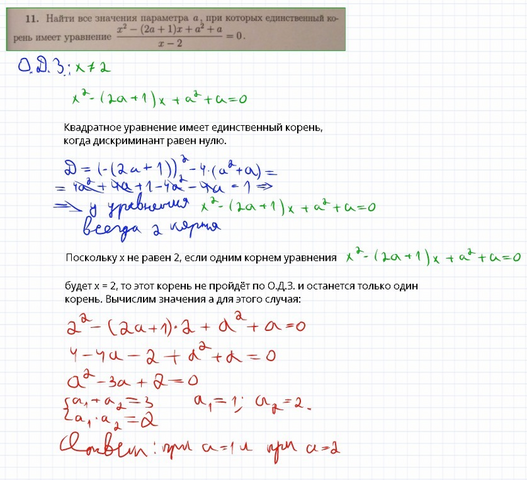 11. Найти все значения параметра a, при которых единственный ко-
рень имеет уравнение (x² − (2a + 1)x + a² + a)/(x − 2) = 0.
О.Д.З.: x ≠ 2
x² - (2a+1)x + a² + a = 0
Квадратное уравнение имеет единственный корень,
когда дискриминант равен нулю.
D = (-(2a+1))² - 4·(a²+a) =
= 4a² + 4a + 1 - 4a² - 4a = 1 ⇒
⇒ у уравнения x² - (2a+1)x + a² + a = 0
всегда 2 корня
Поскольку x не равен 2, если одним корнем уравнения x² - (2a+1)x + a² + a = 0
будет x = 2, то этот корень не пройдёт по О.Д.З. и останется только один
корень. Вычислим значения a для этого случая:
2² - (2a+1)·2 + a² + a = 0
4 - 4a - 2 + a² + a = 0
a² - 3a + 2 = 0
{a₁ + a₂ = 3 a₁ = 1; a₂ = 2.
{a₁ · a₂ = 2
Ответ: при a=1 и при a=2